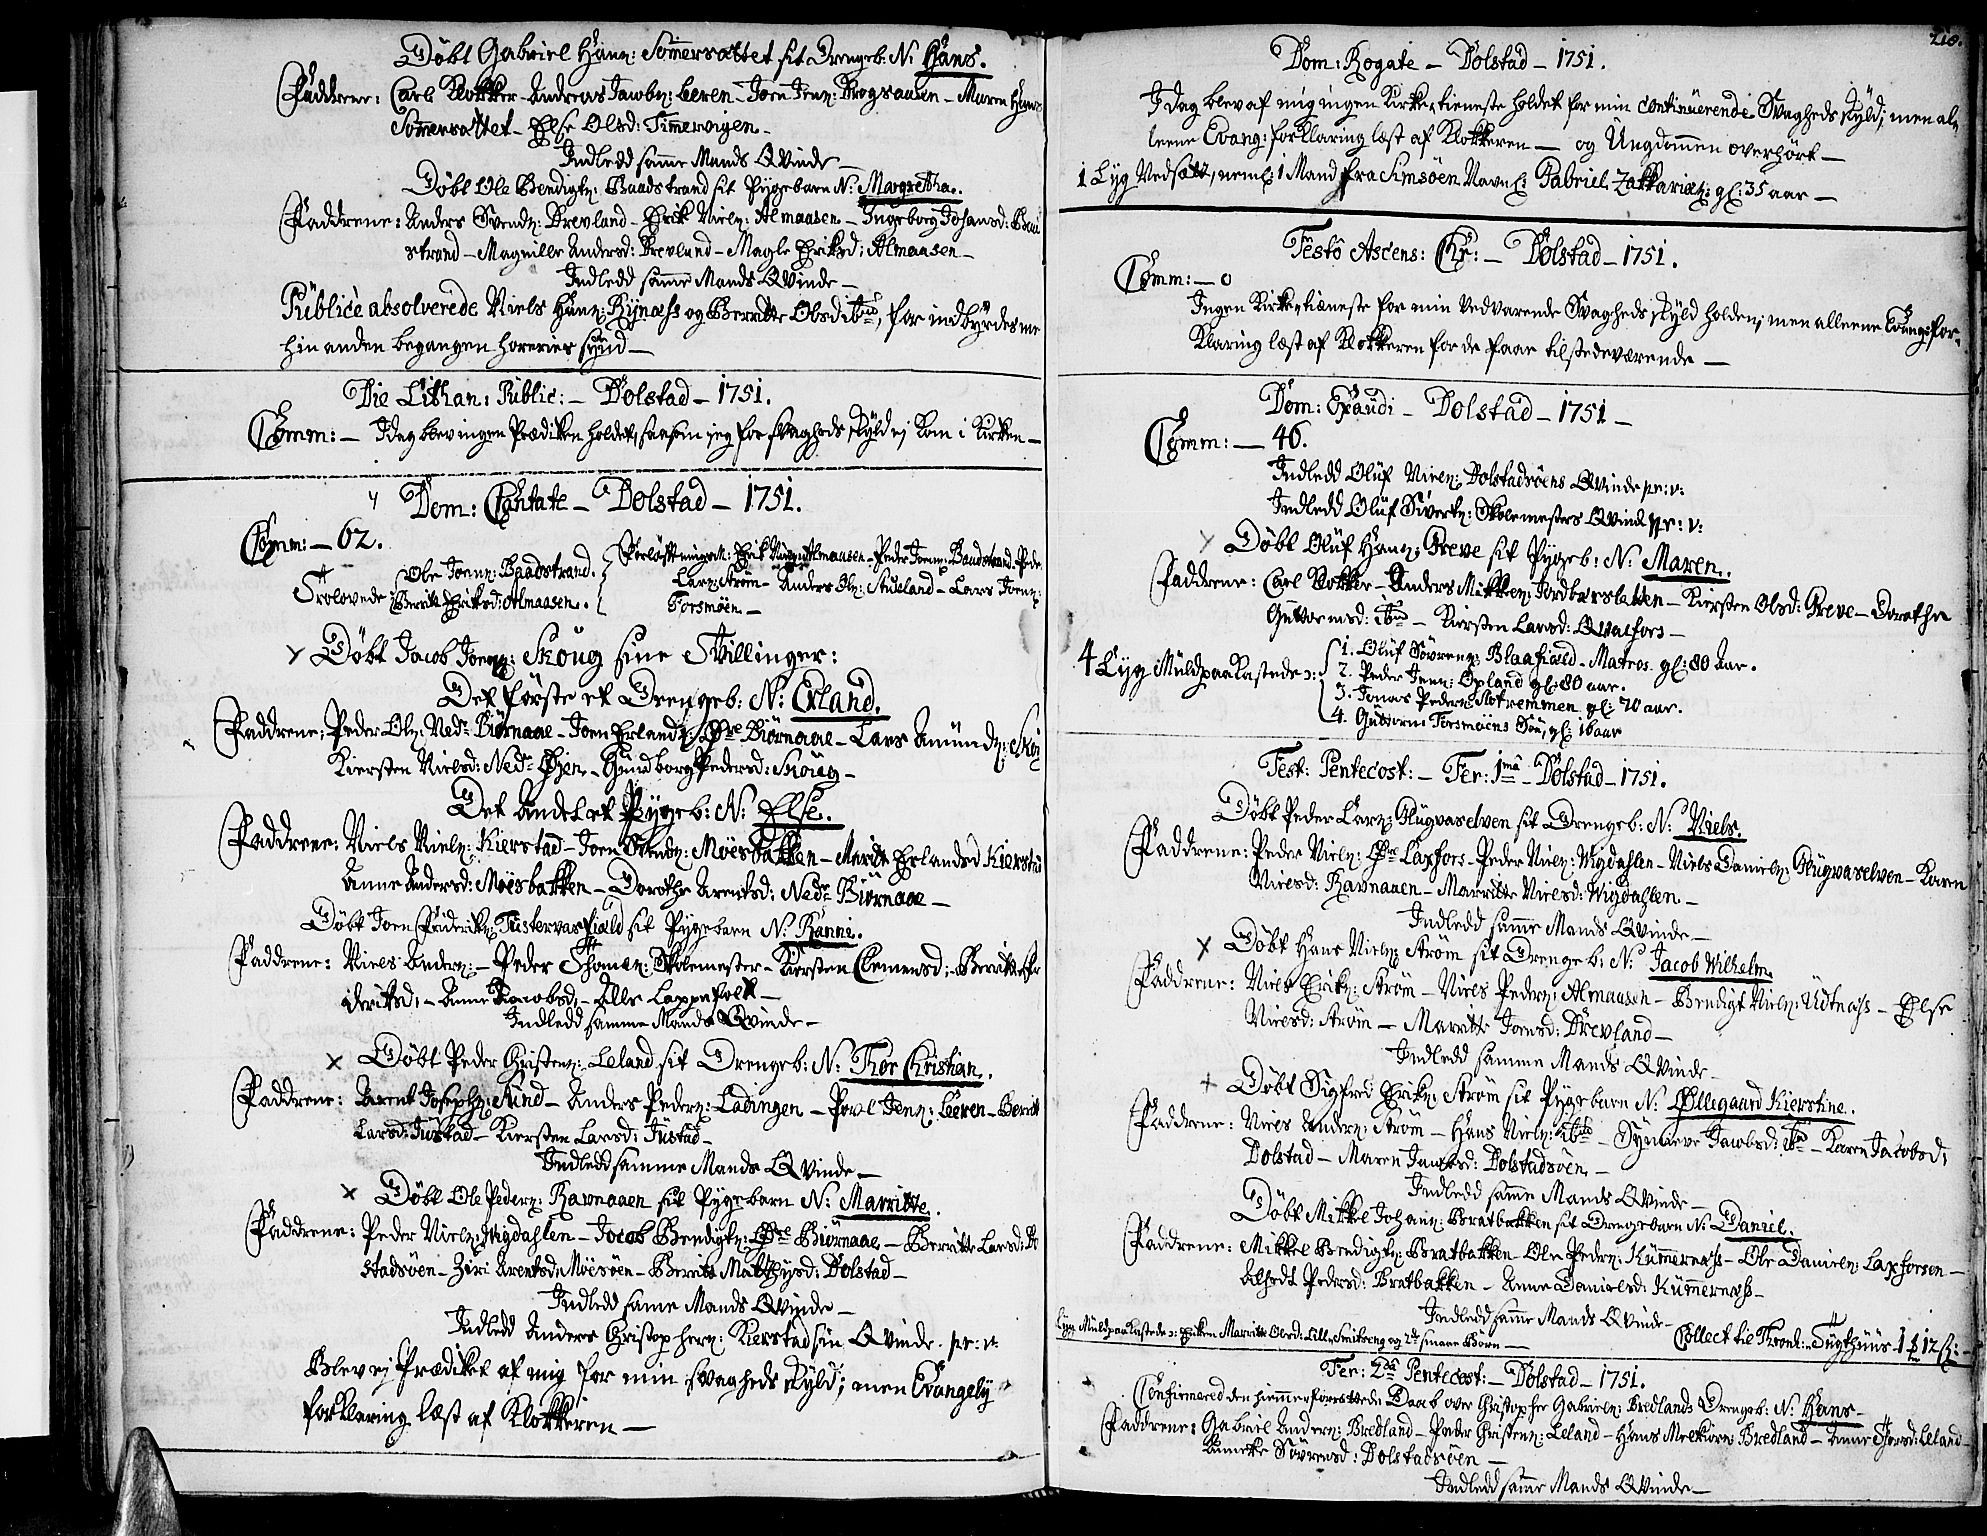 Döbt Gabriel Hanß: Sommersættet sit Drengeb: N: Hans.
Faddrene: Carl Klokker - Andreas Jacobß: Leren - Joen Jenß: Krogsaasen - Maren
Sommersættet - Else Olsd: Timmervigen -
Indledd samme Mands Qvinde -
Döbt Ole Bendigtß: Baadstrand sit Pygebarn N: Margretha.
Faddrene: Anders Svendß: Drevland - Erik Nielß: Almaasen - Ingeborg Johansd: Baad
strand - Magnille Andersd: Drevland - Magle Eriksd: Almaasen -
Indledd samme Mands Qvinde -
Publicè absolverede Niels Hanß: Rynæss og Berritte Olsd: ibid, for indbyrdes me
hin anden begangen horeries synd -
Die Lithan: Public: - Dolstad - 1751.
Comm: - Idag blev ingen Prædiken holdet, saasom jeg for svagheds skyld ej kom i Kirken -
Dom: Cantate - Dolstad - 1751.
Comm: - 62.
Trolovede: Ole Joenß: Baadstrand. Berritte Eriksd: Almaasen.
Forløftningsm: Erik Almaasen - Peder Joenß: Baadstrand - Peder
Larß: Ström - Anders Olß: Stueland - Lars Joenß:
Forsmöen -
Döbt Jacob Joenß: Skoug sine Tvillinger:
Det förste et Drengeb: N: Erland.
Faddrene: Peder Olß: Nedr Biörnaae - Joen Erlandß: Øvre Biörnaae - Lars Amundß: Skou
Kiersten Nielsd: Nedr - Gundborg Pedersd: Skoug -
Det Andet et Pygeb: N: Else.
Faddrene: Niels Nielß: Kierstad - Joen Svendß: Moësbakken - Maritte Erlandsd: Kierstad
Anne Andersd: Moësbakken - Dorothe Arentsd: Nedr Biörnaae -
Döbt Joen Friderikß: Tustervasfiæld sit Pygebarn N: Ranni.
Faddrene: Niels Anderß: - Peder Thomeß: Skolemester - Kiersten Clemensd: - Berritte Fri
deriksd: - Anne Jacobsd: - Alle Lappefolk -
Indledd samme Mands Qvinde -
Döbt Peder Christenß: Leland sit Drengeb: N: Thor Christian.
Faddrene: Arent Josephß: Sund - Anders Pederß: Ladingen - Povl Jenß: Leeren - Berrit
Larsd: Justad - Kiersten Larsd: Justad -
Indledd samme Mands Qvinde -
Döbt Ole Pederß: Ravnaaen sit Pygebarn N: Marritte.
Faddrene: Peder Nielß: Wigdahlen - Jacob Bendigtß: Øvre Biörnaae - Berritte Larsd: Dol
stadsöen - Ziri Arentsd: Moësöen - Berritte Matthysd: Dolstad -
Indledd samme Mands Qvinde -
Indledd Anders Christopherß: Kierstad sin Qvinde. pr: v:
Blev ej Prædiket af mig for min svagheds skyld; men Evangely
forklaring læst af Klokkeren -
218.
Dom: Rogate - Dolstad - 1751.
I dag blev af mig ingen Kirke-tieneste holdet for min continuerende Svagheds skyld; men al-
leene Evang: forklaring læst af Klokkeren - og Ungdommen overhört -
1 Lyg Nedsætt, neml: 1 Mand fra Simsöen Navnl: Gabriel Zakkariæß: gl: 35 aar -
Festô Ascens: Chr: - Dolstad - 1751.
Comm: - 0
Ingen Kirke-tieneste for min Vedvarende Svagheds skyld holden; men alleene Evang: for-
Klaring læst af Klokkeren for de faae tilstedeværende -
Dom: Exaudi - Dolstad - 1751 -
Comm: - 46.
Indledd Oluf Nielß: Dolstadsöens Qvinde pr: v:
Indledd Oluf Sivertß: Skolemesters Qvinde pr: v:
Döbt Oluf Hanß: Greve sit Pygeb: N: Maren.
Faddrene: Carl Klokker - Anders Mikkelß: Jordbærslatten - Kiersten Olsd: Greve - Dorothe
Guttormsd: ibid - Kiersten Larsd: Qvalfors -
4 Lyg Muldpaakastede ɔ:
1. Oluf Sövrenß: Blaafiæld - Matros gl: 80 Aar.
2. Peder Jenß: Øxland gl: 80 aar.
3. Jonas Pederß: Slotremmen gl: 70 aar.
4. Guttorm Forsmöens Sön, gl: 16 aar
Fest: Pentecost: - Fer: 1mâ - Dolstad - 1751.
Döbt Peder Larß: Glugvaselven sit Drengeb: N: Niels.
Faddrene: Peder Nielß: Øvre Laxfors - Peder Nielß: Wigdahlen - Niels Danielß: Glugvaselven - Karen
Nielsd: Ravnaaen - Marritte Nielsd: Wigdahlen -
Indledd samme Mands Qvinde -
Döbt Hans Nielß: Ström sit Drengeb: N: Jacob Wilhelm.
Faddrene: Niels Erikß: Ström - Niels Pederß: Almaasen - Bendigt Nielß: Utnæss - Else
Nielsd: Ström - Marritte Joensd: Drevland -
Indledd samme Mands Qvinde -
Döbt Sigfred Erikß: Ström sit Pygebarn N: Øllegaard Kierstine.
Faddrene: Niels Anderß: Ström - Hans Nielß: ibid - Synneve Jacobsd: ibid - Karen Jacobsd:
Dolstad - Maren Jacobsd: Dolstadsöen -
Indledd samme Mands Qvinde -
Döbt Mikkel Johanß: Bratbakken sit Drengebarn N: Daniel.
Faddrene: Mikkel Bendigtß: Bratbakken - Ole Pederß: Kummernæss - Ole Danielß: Laxforsen -
Alhedt Pedersd: Bratbakken - Anne Danielsd: Kummernæss -
Indledd samme Mands Qvinde -
Lyg Muldpaakastede ɔ: Enken Marritte Olsd: Lille Smitseng og 2de smaae Börn -
Collect til Trond: Tugthuus 1 12 ß: -
Fer: 2dâ Pentecost: - Dolstad - 1751.
Confirmered den hiemmeforrettede Daab over Christopher Gabrielß: Bredlands Drengeb: N: Hans -
Faddrene: Gabriel Anderß: Bredland - Peder Christenß: Leland - Hans Melkiorß: Bredland - Anne Leland -
Annecke Sövrensd: Dolstadsöen -
Indledd samme Mands Qvinde -